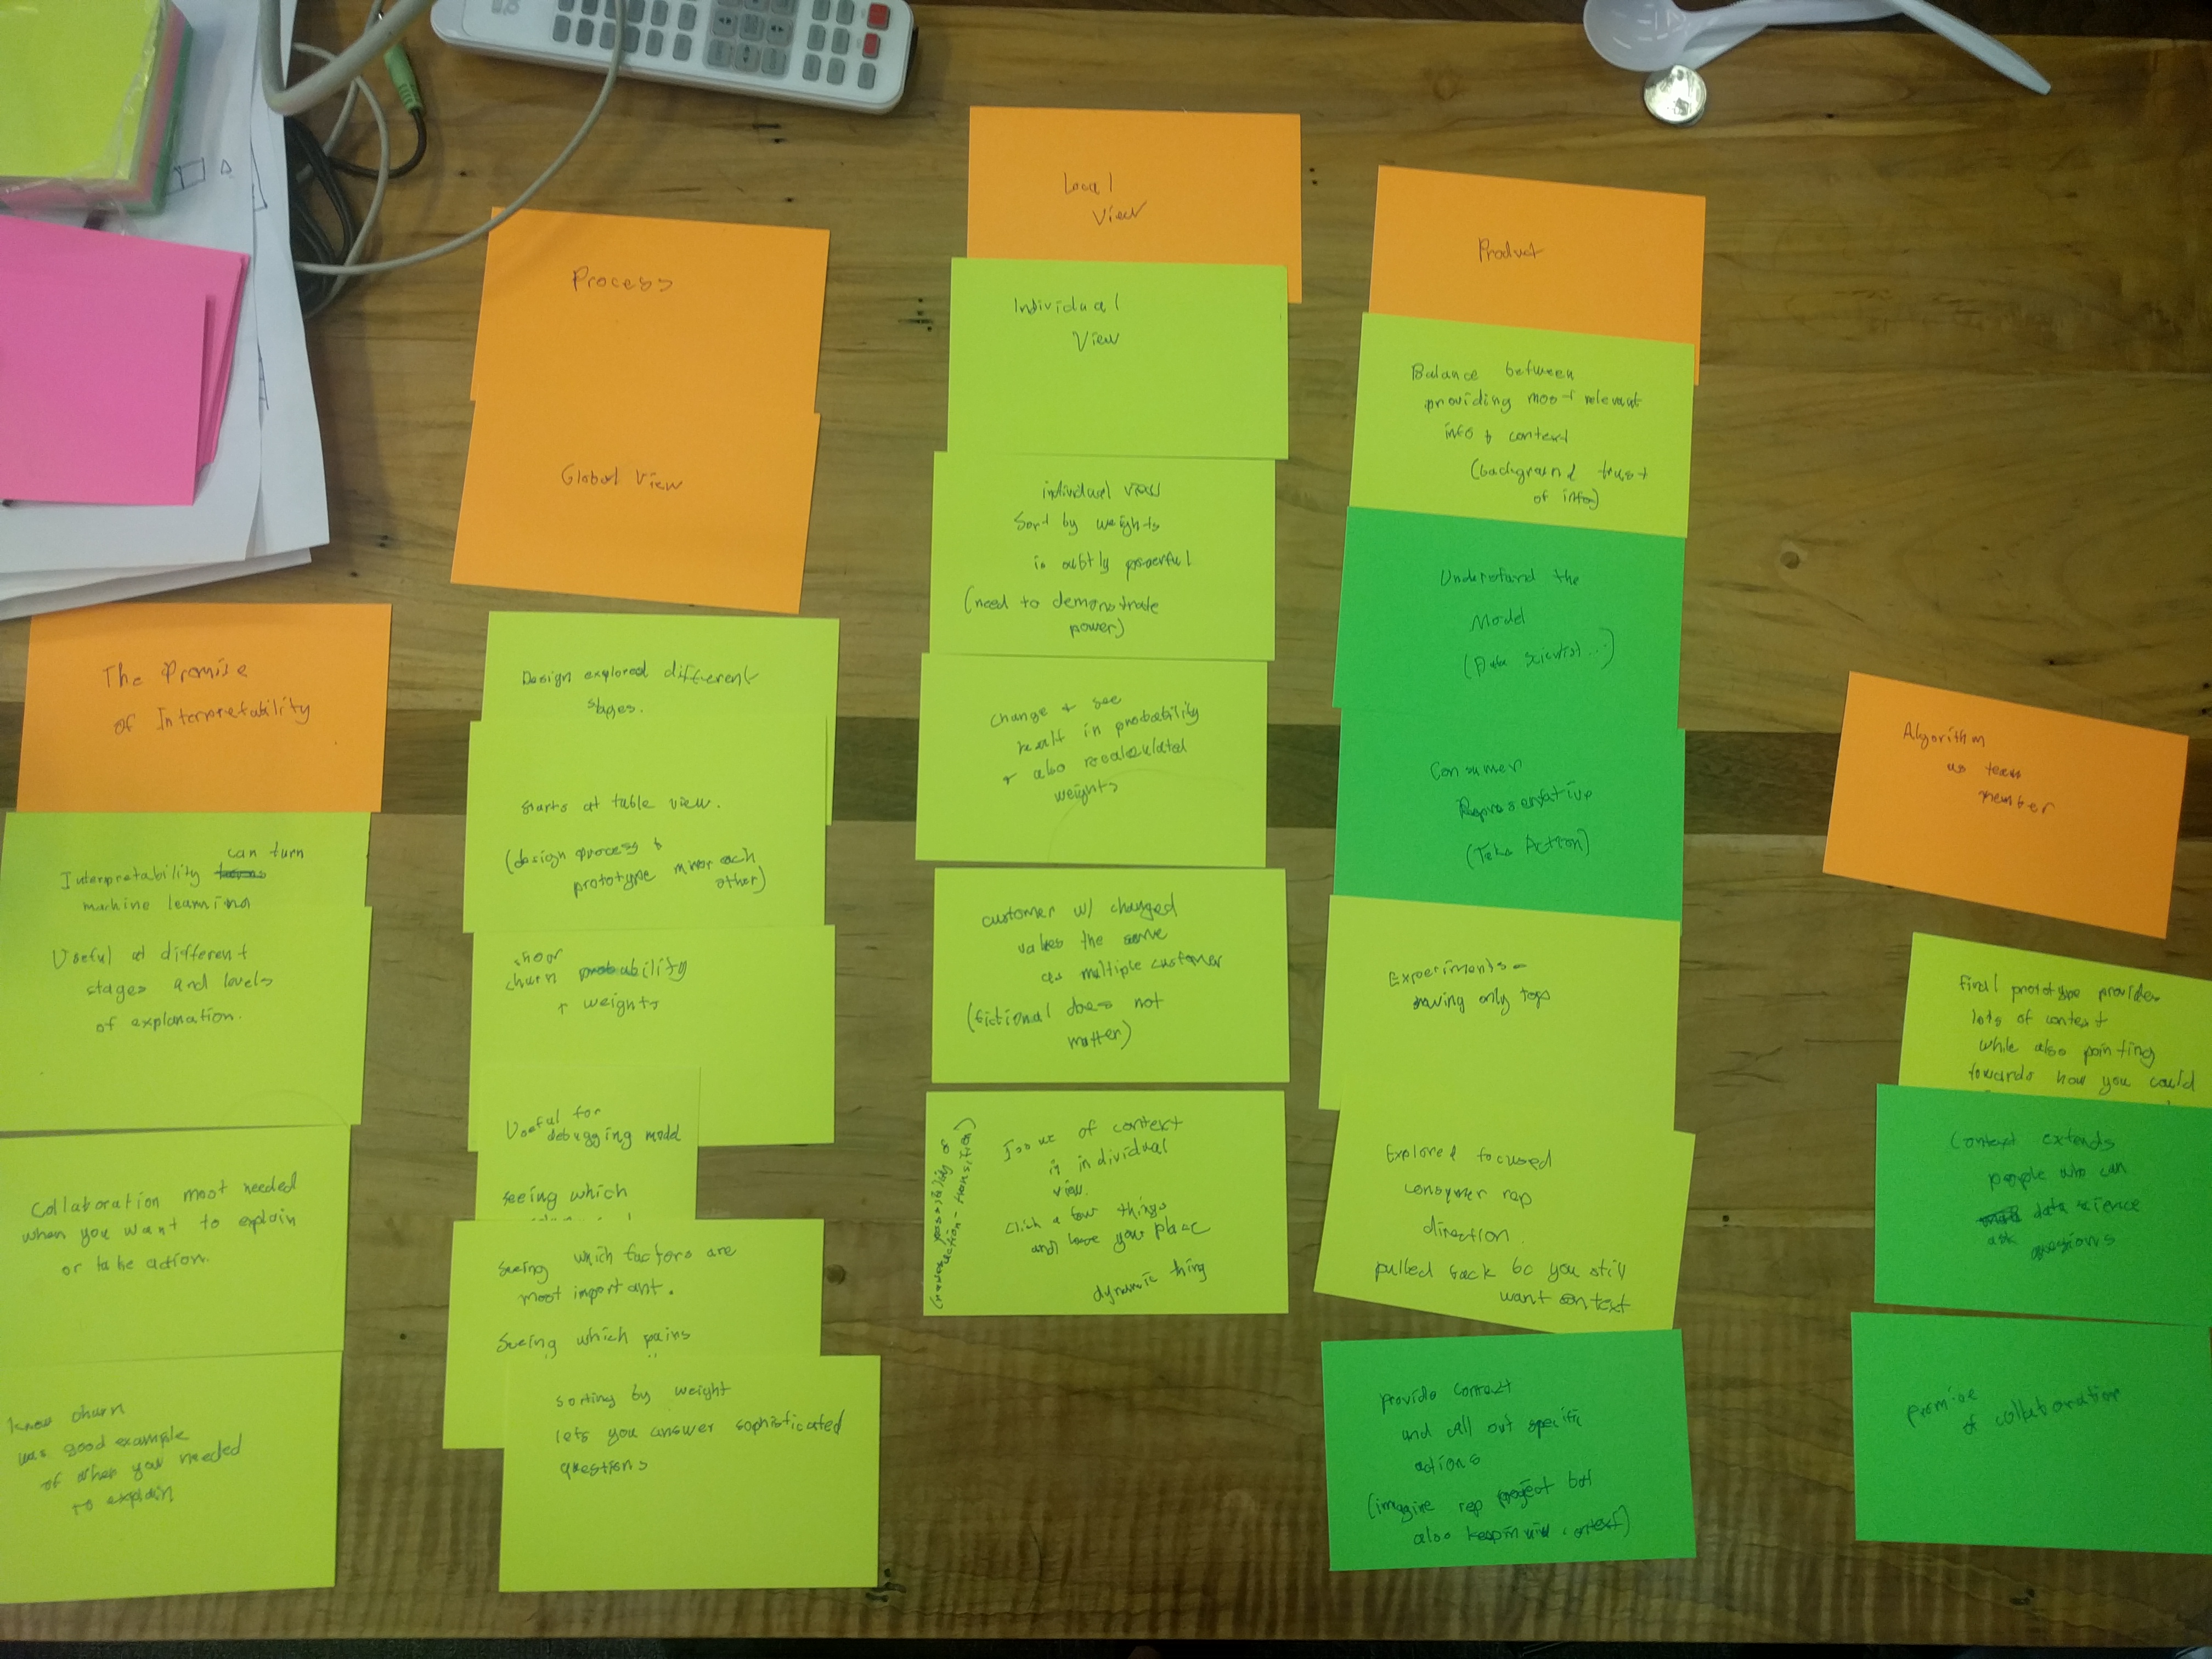 The Promise
of Interpretability
can turn
Interpretability
machine learning
Useful at different
stages and levels
of explanation.
Collaboration most needed
when you want to explain
or take action.
knew churn
was good example
of when you needed
to explain
Process
Global View
Design explored different
stages.
starts at table view.
(design process &
prototype mirror each
other)
show
churn probability
+ weights
Useful for
debugging model
seeing which
Seeing which factors are
most important.
Seeing which pairs
sorting by weight
lets you answer sophisticated
questions
Local
View
Individual
View
individual view
Sort by weights
is subtly powerful
(need to demonstrate
power)
change & see
result in probability
+ also recalculated
weights
customer w/ changed
values the same
as multiple customer
(fictional does not
matter)
Issue of context
in individual
view.
click a few things
and lose your place
dynamic thing
Product
Balance between
providing most relevant
info & context
(background trust
of info)
Understand the
Model
(Data Scientist...)
Consumer
Representative
(Take Action)
Experiments -
having only top
Explored focused
consumer rep
direction.
pulled back bc you still
want context
provide context
and call out specific
actions
(imagine rep project but
also
Algorithm
as team
member
Final prototype provides
lots of context
while also pointing
towards how you could
Context extends
people who can
data science
ask questions
promise
of collaboration